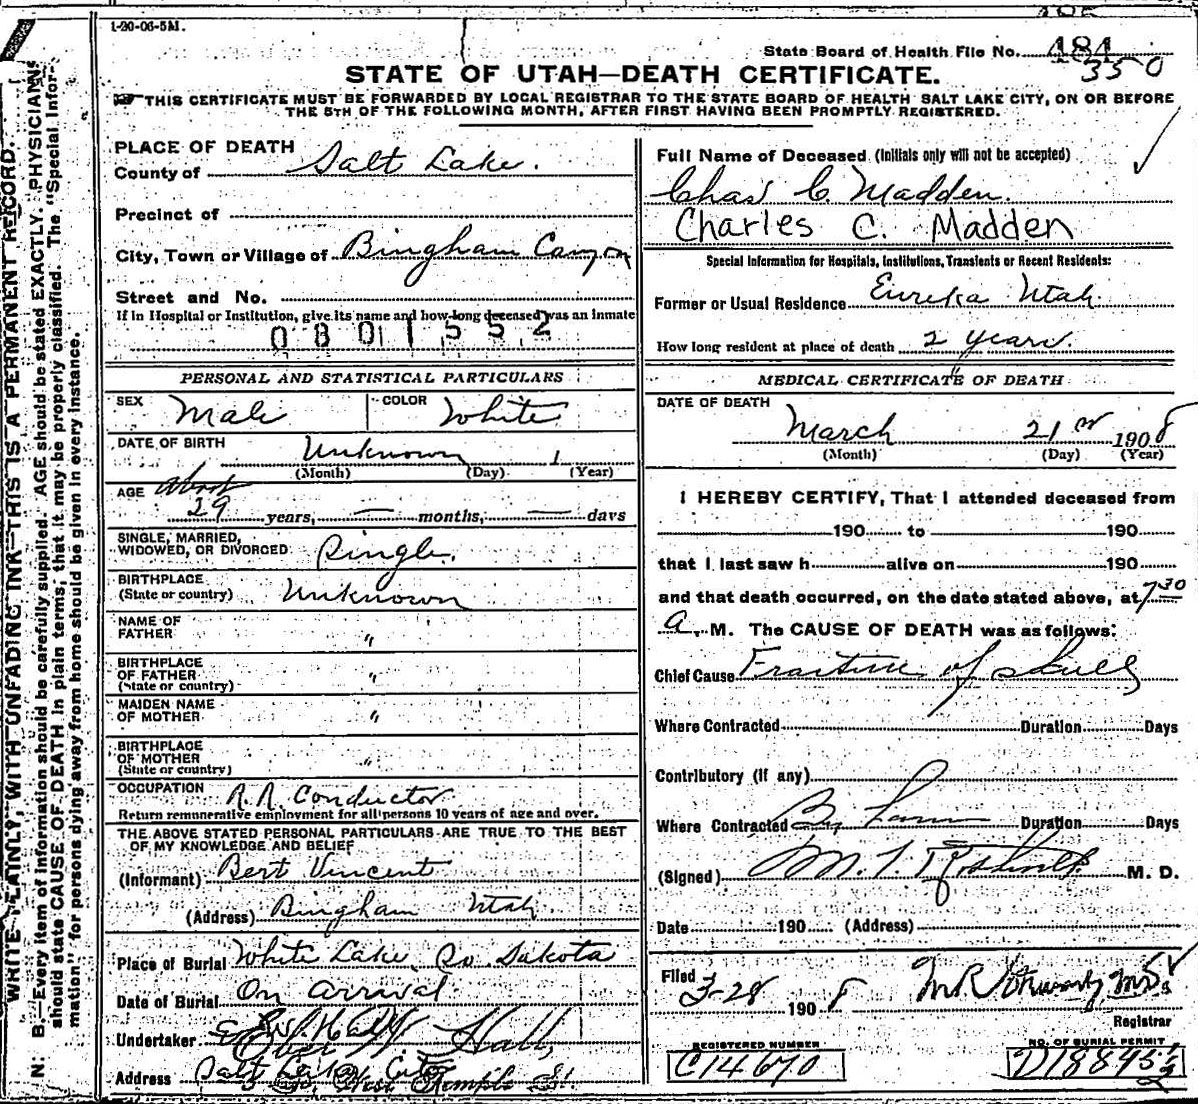 1-20-06-5M.
State Board of Health File No. 484
350
STATE OF UTAH—DEATH CERTIFICATE.
THIS CERTIFICATE MUST BE FORWARDED BY LOCAL REGISTRAR TO THE STATE BOARD OF HEALTH SALT LAKE CITY, ON OR BEFORE
THE 5TH OF THE FOLLOWING MONTH, AFTER FIRST HAVING BEEN PROMPTLY REGISTERED.
WRITE PLAINLY, WITH UNFADING INK—THIS IS A PERMANENT RECORD.
N. B.—Every item of information should be carefully supplied. AGE should be stated EXACTLY. PHYSICIANS
should state CAUSE OF DEATH in plain terms, that it may be properly classified. The "Special Infor-
mation" for persons dying away from home should be given in every instance.
PLACE OF DEATH
County of Salt Lake.
Precinct of
City, Town or Village of Bingham Canyon
Street and No.
If in Hospital or Institution, give its name and how long deceased was an inmate
0801552
PERSONAL AND STATISTICAL PARTICULARS
SEX Male COLOR White
DATE OF BIRTH Unknown 1
(Month) (Day) (Year)
AGE about
29 years, — months, — days
SINGLE, MARRIED,
WIDOWED, OR DIVORCED Single.
BIRTHPLACE
(State or country) Unknown
NAME OF
FATHER "
BIRTHPLACE
OF FATHER "
(State or country)
MAIDEN NAME
OF MOTHER "
BIRTHPLACE
OF MOTHER "
(State or country)
OCCUPATION R.R. Conductor
Return remunerative employment for all persons 10 years of age and over.
THE ABOVE STATED PERSONAL PARTICULARS ARE TRUE TO THE BEST
OF MY KNOWLEDGE AND BELIEF
(Informant) Bert Vincent
(Address) Bingham Utah
Place of Burial White Lake, So. Dakota
Date of Burial On arrival
Undertaker Hall
Address Salt Lake City
Temple St.
Full Name of Deceased (Initials only will not be accepted)
Chas C. Madden.
Charles C. Madden
Special Information for Hospitals, Institutions, Transients or Recent Residents:
Former or Usual Residence Eureka Utah
How long resident at place of death 2 years.
MEDICAL CERTIFICATE OF DEATH
DATE OF DEATH
March 21 1908
(Month) (Day) (Year)
I HEREBY CERTIFY, That I attended deceased from
190 to 190
that I last saw h alive on 190
and that death occurred, on the date stated above, at 7 30
a. M. The CAUSE OF DEATH was as follows:
Chief Cause Fracture of skull
Where Contracted Duration Days
Contributory (If any)
Where Contracted Duration Days
(Signed) M. D.
Date 190 (Address)
Filed 3-28 1908
Registrar
REGISTERED NUMBER
C14670
NO. OF BURIAL PERMIT
D18845½